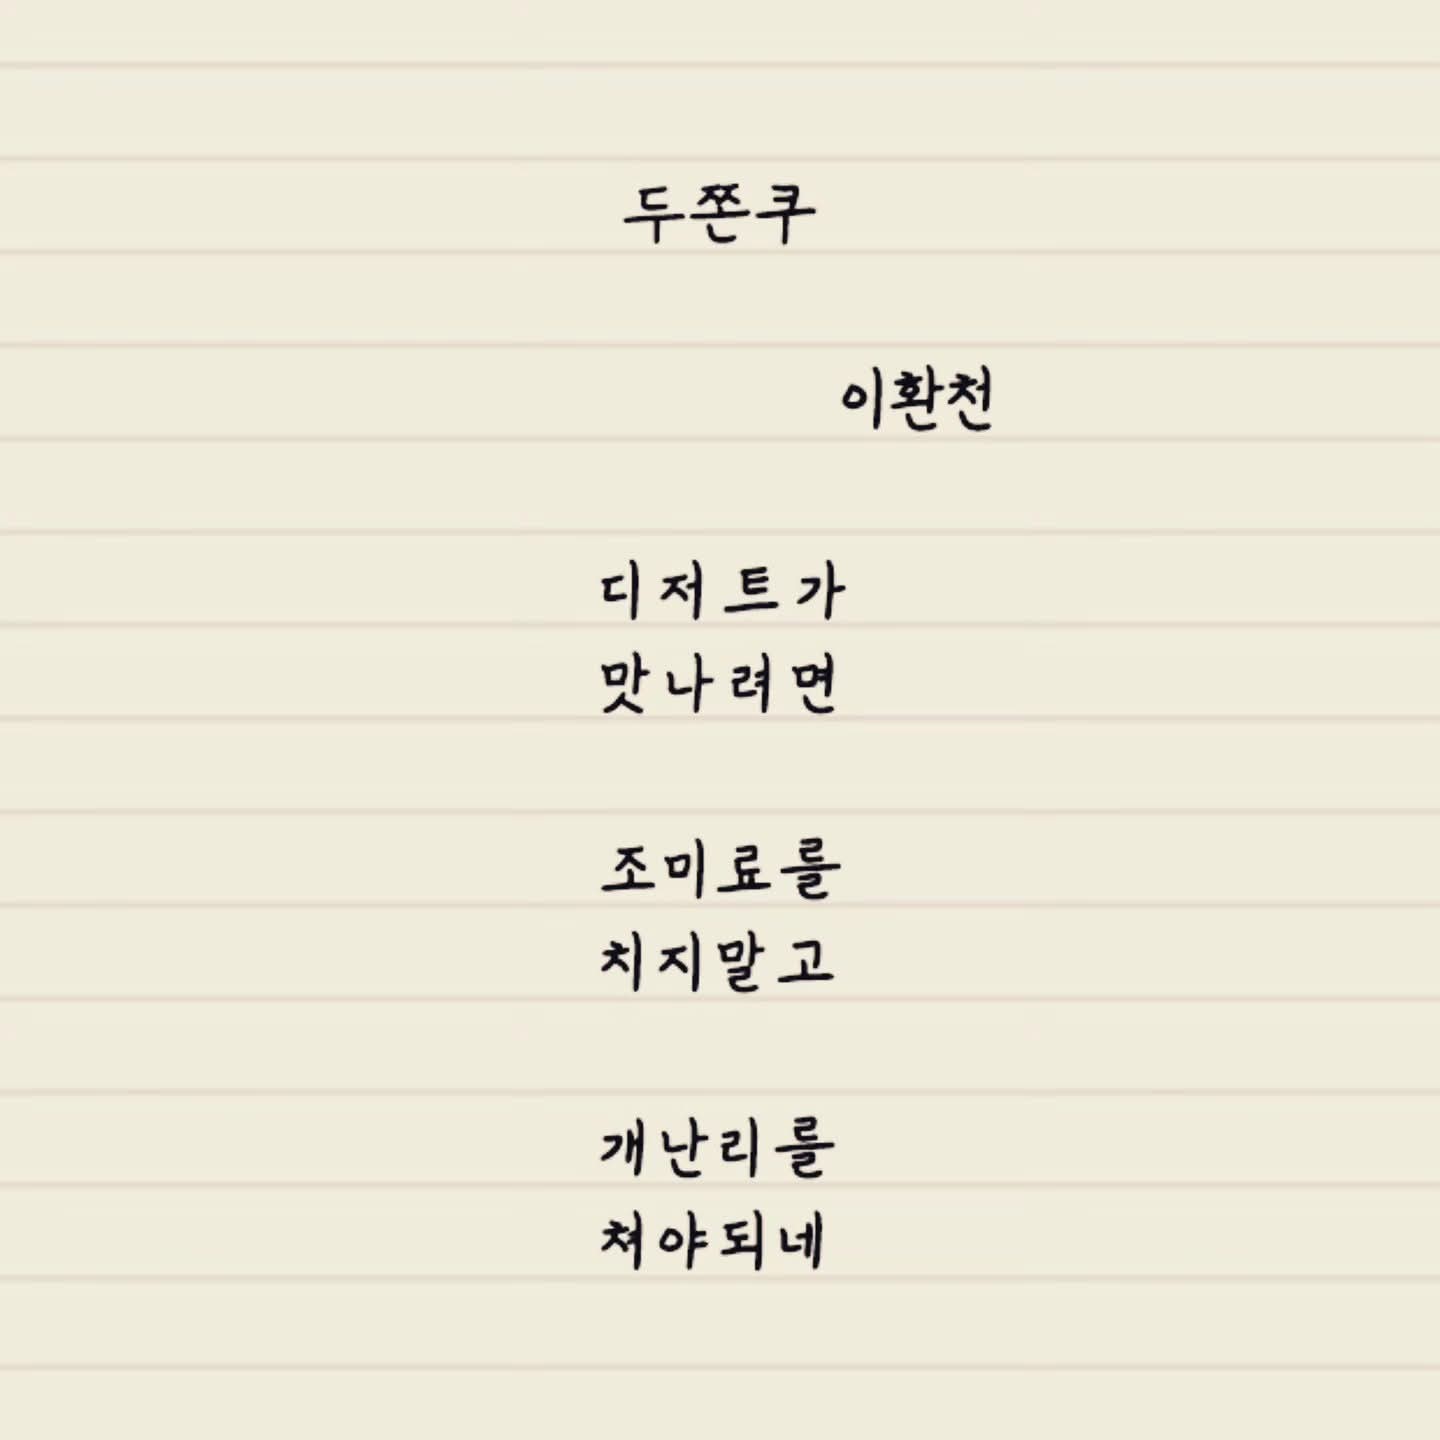 두쫀쿠
이환천
디저트가
맛나려면
조미료를
치지말고
개난리를
쳐야되네